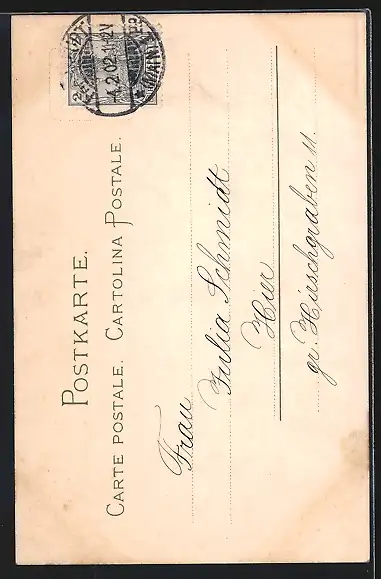 POSTKARTE.
CARTE POSTALE. CARTOLINA POSTALE.
4.2.02.11-12V
Frau
Julia Schmidt
Hier
gr. Hirschgraben 11.